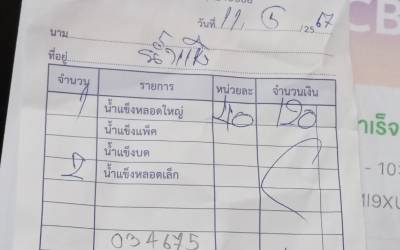 วันที่ 11 / 5 / 2567
นาม
ที่อยู่ น้ำแข็ง
จำนวน รายการ หน่วยละ จำนวนเงิน
1 น้ำแข็งหลอดใหญ่ 40 120
น้ำแข็งแพ็ค
น้ำแข็งบด
2 น้ำแข็งหลอดเล็ก
034675
CB
าเร็จ
- 10:
MI9XU